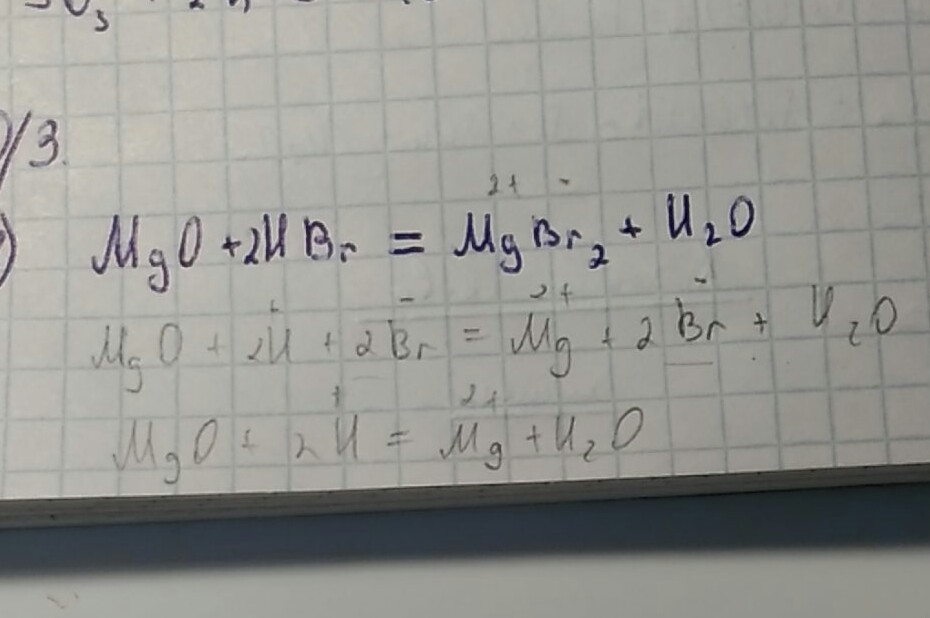 /3.
MgO + 2HBr = Mg²⁺Br⁻₂ + H₂O
MgO + 2H⁺ + 2Br⁻ = Mg²⁺ + 2Br⁻ + H₂O
MgO + 2H⁺ = Mg²⁺ + H₂O